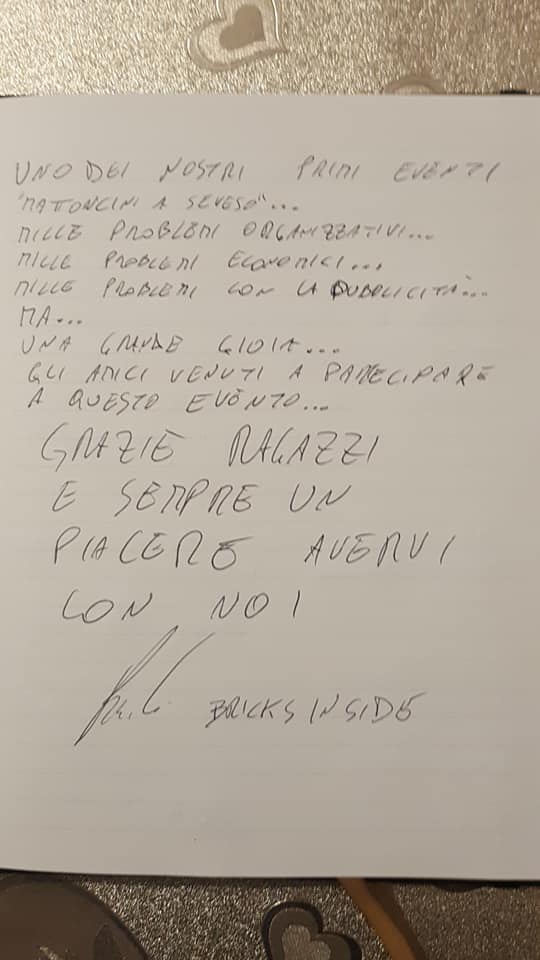 UNO DEI NOSTRI PRIMI EVENTI
"MATTONCINI A SEVESO"...
MILLE PROBLEMI ORGANIZZATIVI...
MILLE PROBLEMI ECONOMICI...
MILLE PROBLEMI CON LA PUBBLICITÀ...
MA...
UNA GRANDE GIOIA...
GLI AMICI VENUTI A PARTECIPARE
A QUESTO EVENTO...
GRAZIE RAGAZZI
E SEMPRE UN
PIACERE AVERVI
CON NOI
BRICKS INSIDE